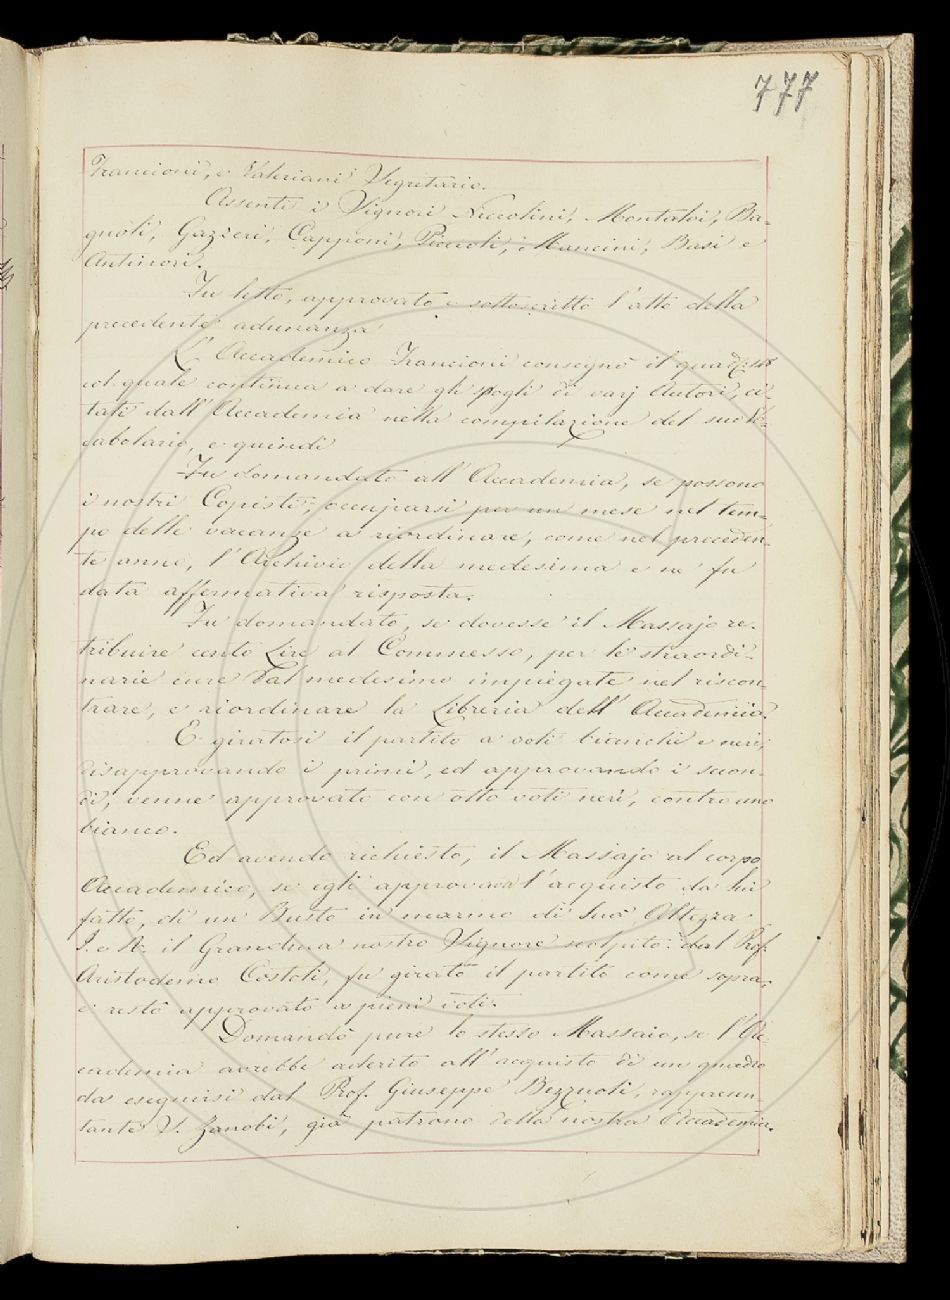 777
Francioni, e Valeriani Segretario.
Assenti i Signori Niccolini, Montalvi, Ba-
gnoli, Gazzeri, Capponi, Piccioli, Mancini, Basi e
Antinori.
Fu letto, approvato e sottoscritto l'atto della
precedente adunanza
L'Accademico Francioni consegnò il
col quale continua a dare gli spogli di varj Autori, ci-
tati dall'Accademia nella compilazione del suo Vo-
cabolario, e quindi
Fu domandato all'Accademia, se possono
i nostri Copisti, occuparsi per un mese nel tem-
po delle vacanze a riordinare, come nel preceden-
te anno, l'Archivio della medesima e ne fu
data affermativa risposta.
Fu domandato, se dovesse il Massajo re-
tribuire cento Lire al Commesso, per le straordi-
narie cure dal medesimo impiegate nel riscon-
trare, e riordinare la Libreria dell'Accademia.
E giratosi il partito a voti bianchi e neri,
disapprovando i primi, ed approvando i secon-
di, venne approvato con otto voti neri, contro uno
bianco.
Ed avendo richiesto, il Massajo al corpo
Accademico, se egli approvava l'acquisto da lui
fatto, di un Busto in marmo di Sua Altezza
I. e R. il Granduca nostro Signore scolpito dal Prof.
Aristodemo Costoli, fu girato il partito come sopra,
e restò approvato a pieni voti.
Domandò pure lo stesso Massaio, se l'Ac-
cademia avrebbe aderito all'acquisto di un quadro
da eseguirsi dal Prof. Giuseppe Bezzuoli, rappresen-
tante S. Zanobi, già patrono della nostra Accademia.